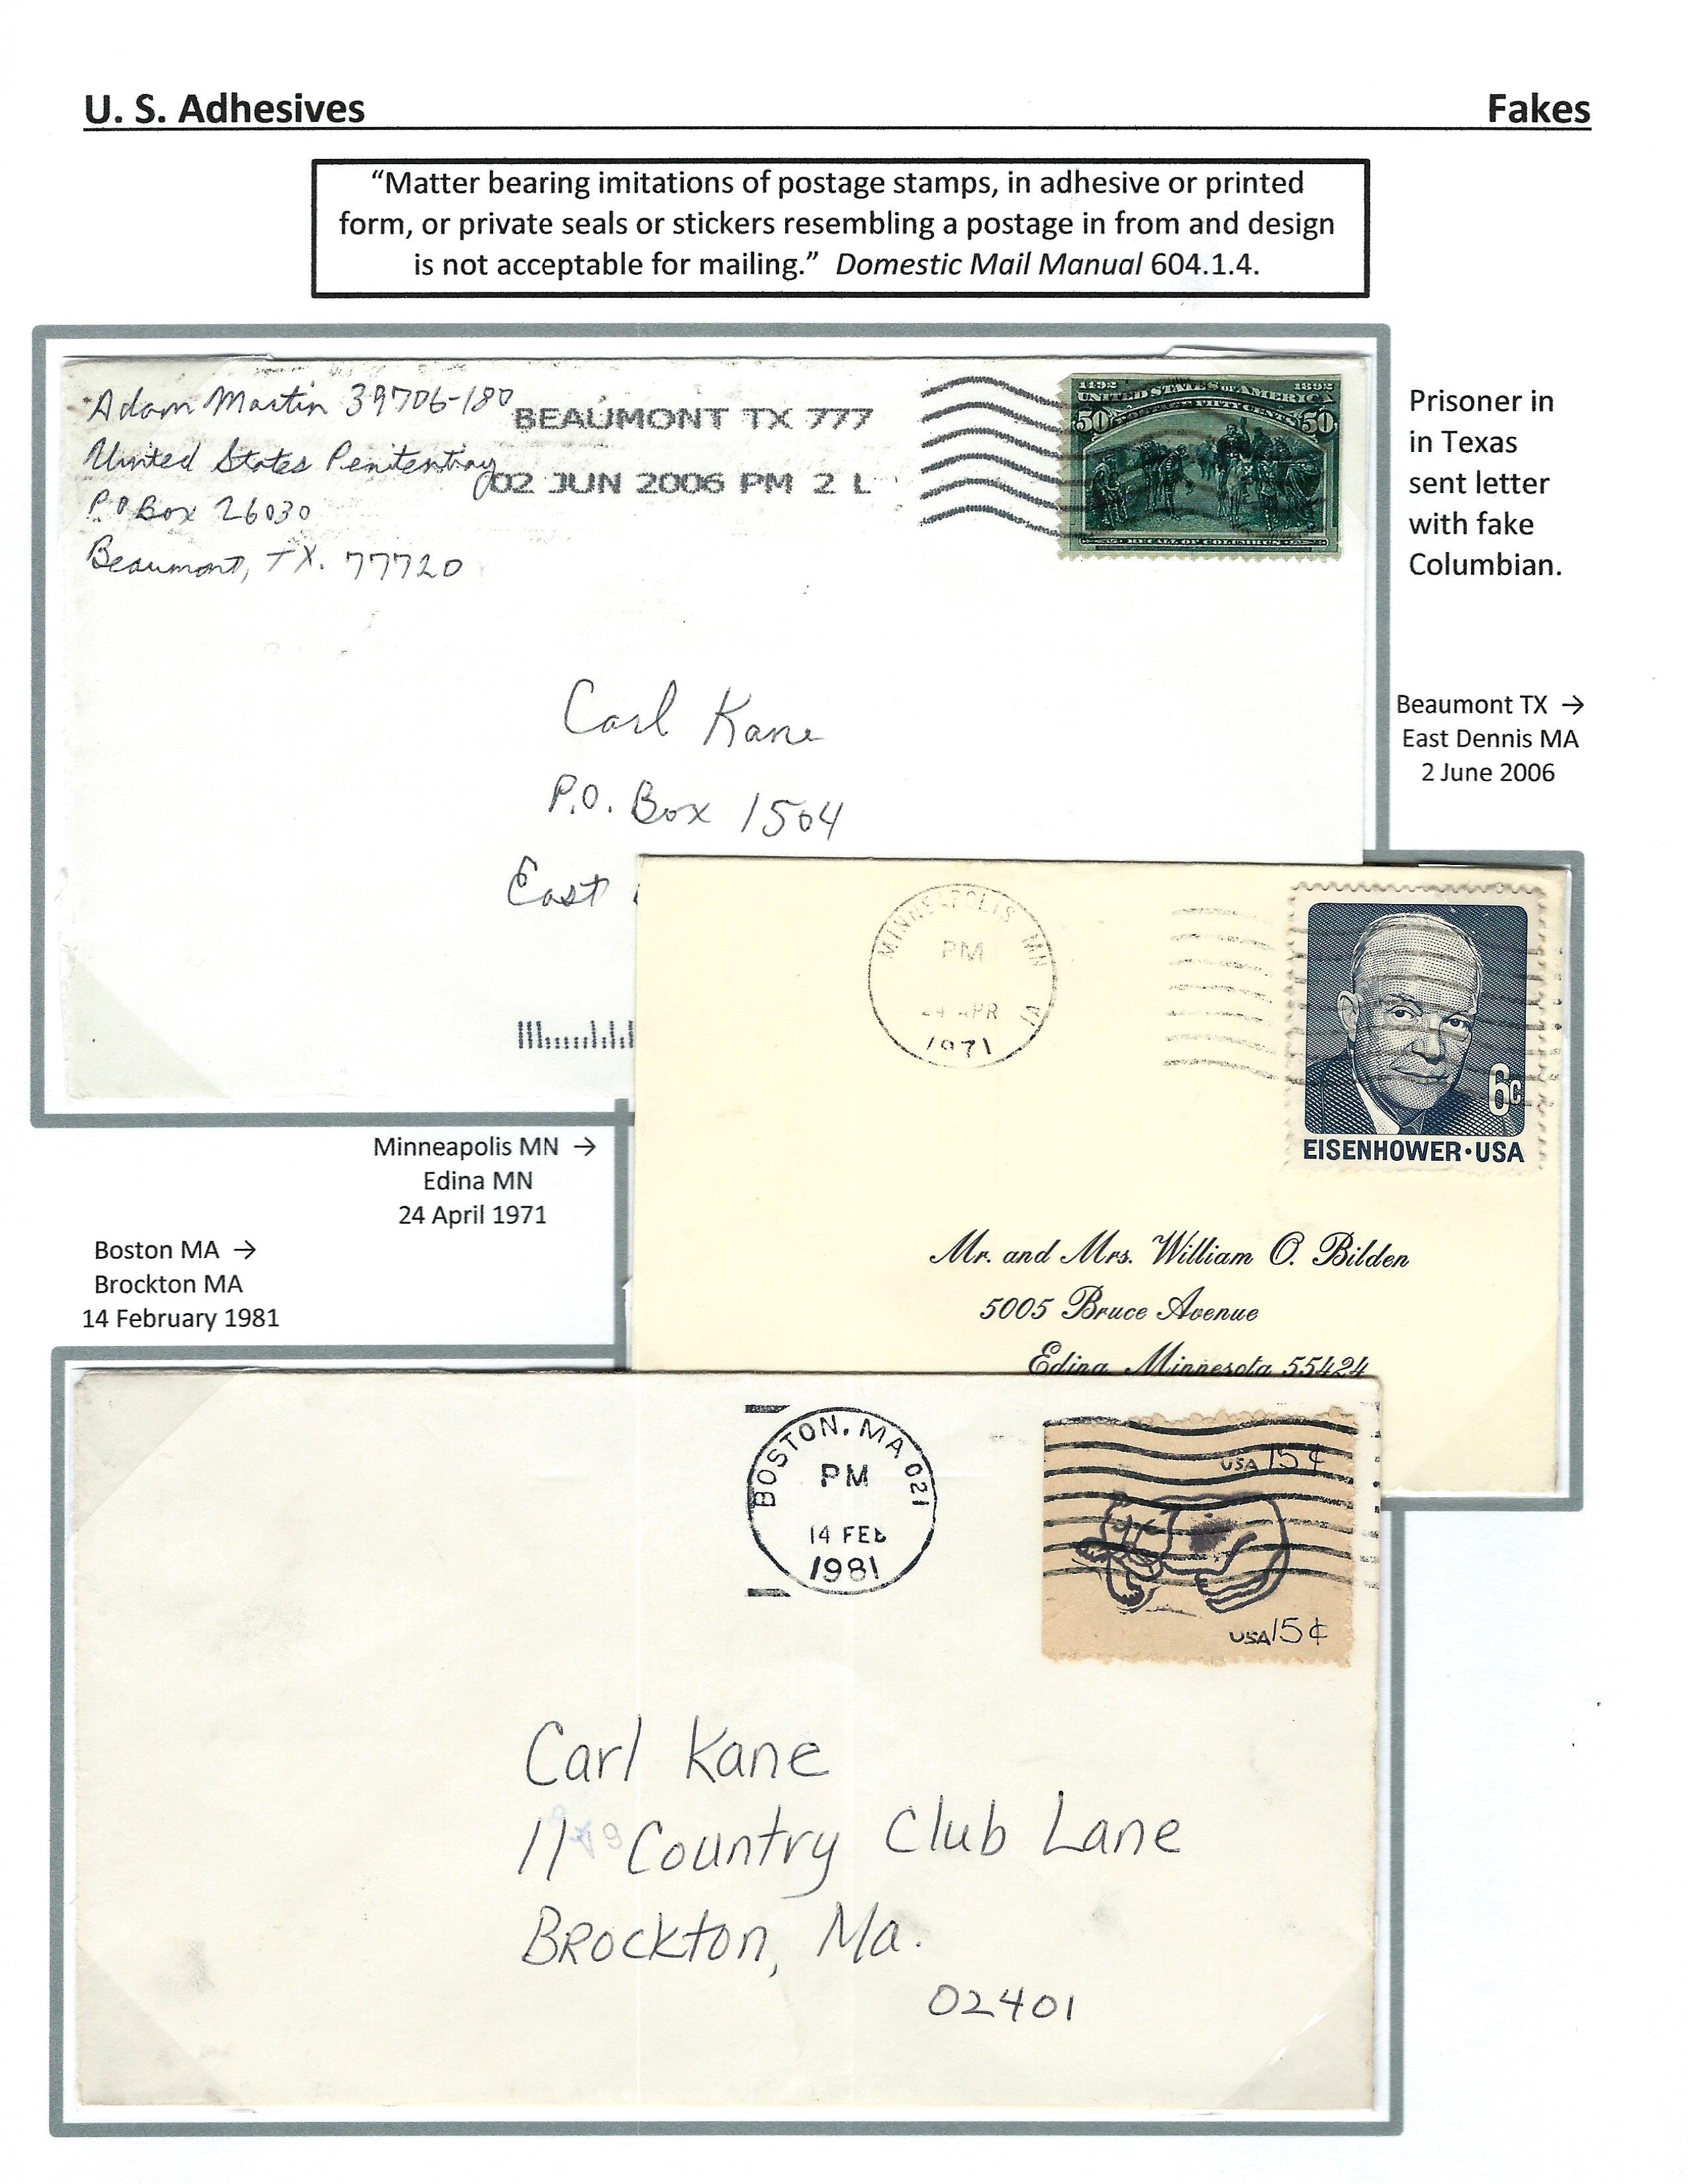 U. S. Adhesives
Fakes
“Matter bearing imitations of postage stamps, in adhesive or printed
form, or private seals or stickers resembling a postage in from and design
is not acceptable for mailing.” Domestic Mail Manual 604.1.4.
Adam Martin 39706-180
United States Penitentiay
P.O Box 26030
Beaumont, TX. 77720
BEAUMONT TX 777
02 JUN 2006 PM 2 L
1492
1892
UNITED STATES OF AMERICA
50
50
RECALL OF COLUMBUS
Prisoner in
in Texas
sent letter
with fake
Columbian.
Carl Kane
P.O. Box 1504
East
Beaumont TX →
East Dennis MA
2 June 2006
MINNEAPOLIS MN
PM
24 APR
1971
6c
EISENHOWER·USA
Minneapolis MN →
Edina MN
24 April 1971
Mr. and Mrs. William O. Bilden
5005 Bruce Avenue
Edina, Minnesota 55424
Boston MA →
Brockton MA
14 February 1981
BOSTON, MA 021
PM
14 FEB
1981
USA 15¢
USA 15¢
Carl Kane
11 Country Club Lane
BRockton, Ma.
02401